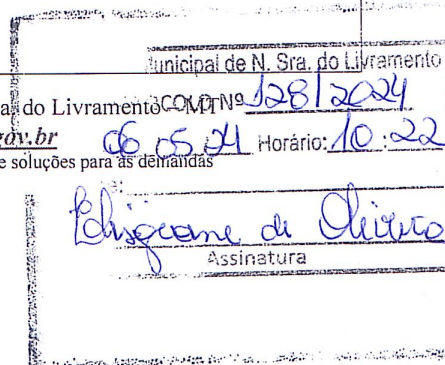 unicipal de N. Sra. do Livramento
a. do Livramento - MT Nº 128/2024
gov.br 06 05 24 Horário: 10:22
e soluções para as demandas
de Oliveira
Assinatura